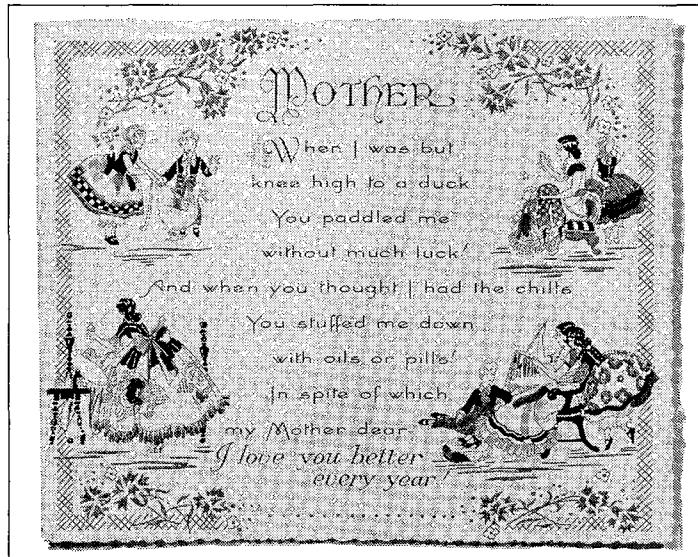 MOTHER
When I was but
knee high to a duck
You paddled me
without much luck!
And when you thought I had the chills
You stuffed me down
with oils or pills!
In spite of which,
my Mother dear,
I love you better
every year!